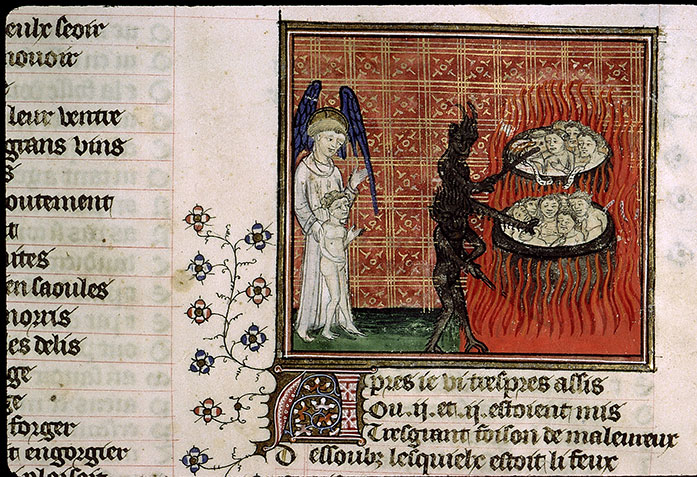 eulx seoir
mouoir
e
leur ventre
grans vins
s
outement
t
uites
en saoules
morris
es delis
ge
ge
forger
t engorgier
plaisoit
Apres ie vi trespres assis
Ou .ij. et .ij. estoient mis
Tresgrant foison de maleureux
Dessoubz lesquielx estoit li feux